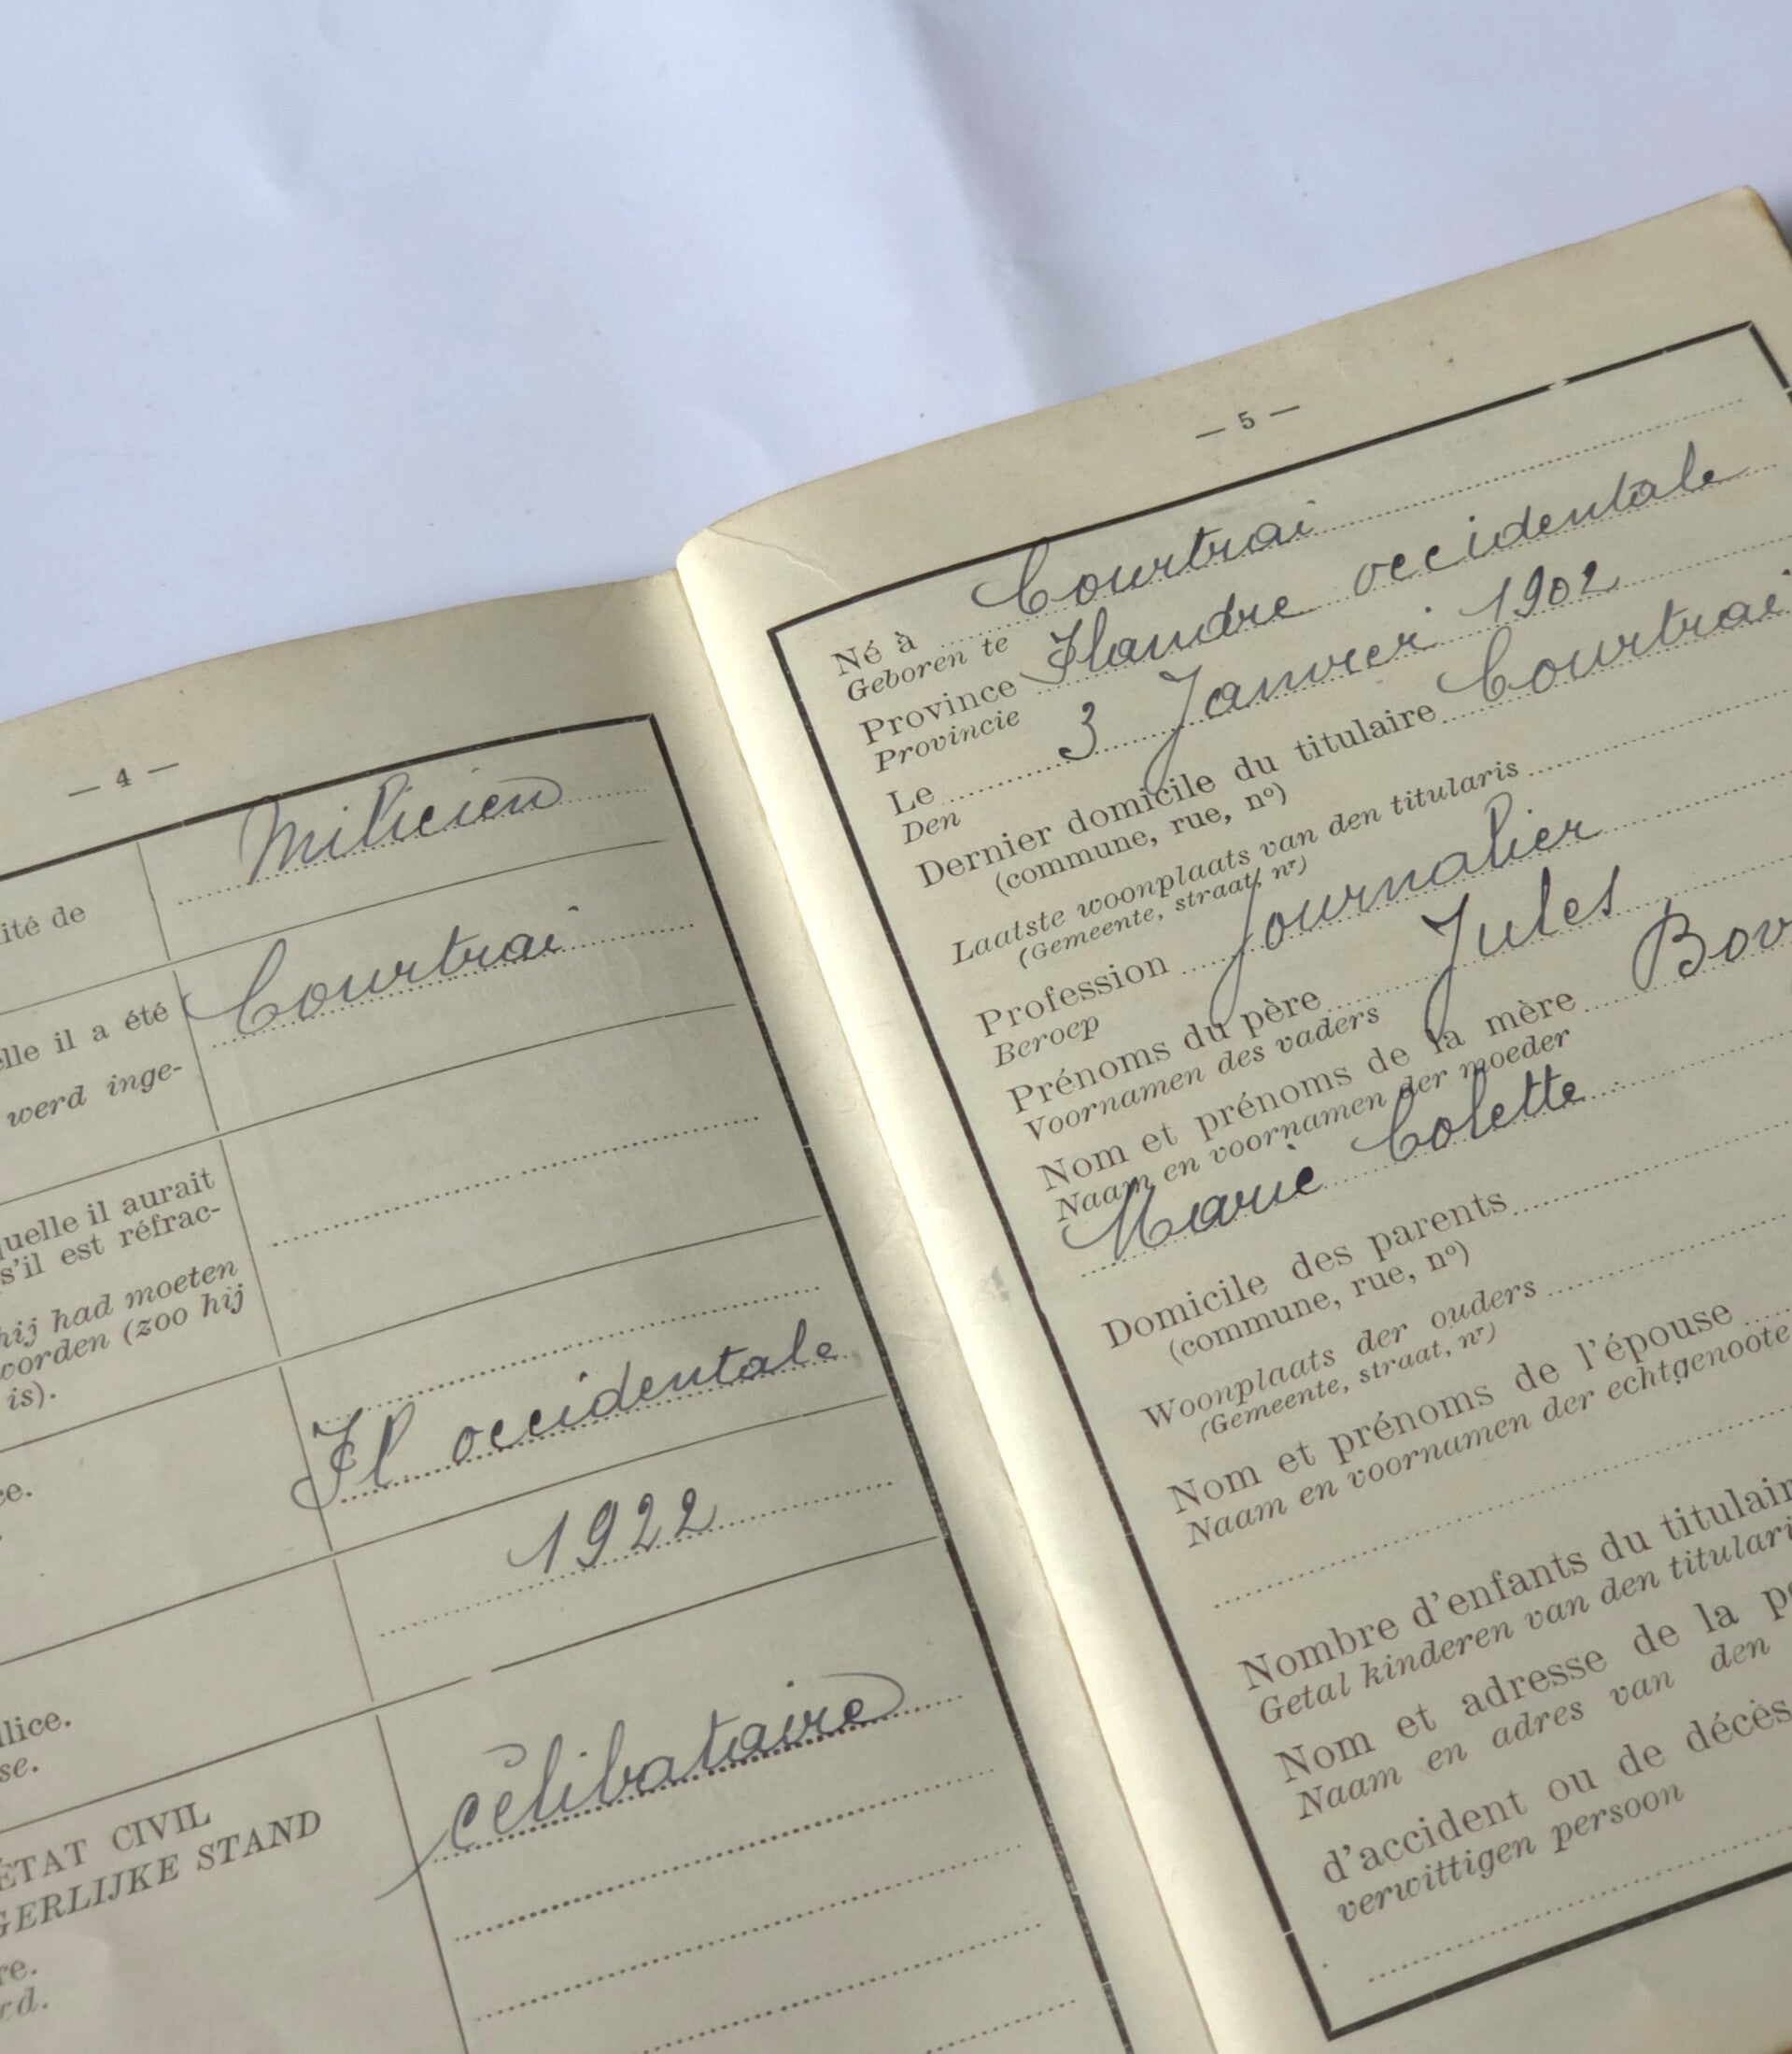 — 4 —
ité de
Milicien
elle il a été
Courtrai
werd inge-
quelle il aurait
s'il est réfrac-
hij had moeten
worden (zoo hij
is).
Fl occidentale
ce.
1922
lice.
se.
ÉTAT CIVIL
GERLIJKE STAND
célibataire
re.
rd.
— 5 —
Né à Courtrai
Geboren te
Province Flandre occidentale
Provincie
Le 3 Janvier 1902
Den
Dernier domicile du titulaire Courtrai
(commune, rue, nº)
Laatste woonplaats van den titularis
(Gemeente, straat, nr)
Profession Journalier
Beroep
Prénoms du père Jules
Voornamen des vaders
Nom et prénoms de la mère Bov
Naam en voornamen der moeder
Marie Colette
Domicile des parents
(commune, rue, nº)
Woonplaats der ouders
(Gemeente, straat, nr)
Nom et prénoms de l'épouse
Naam en voornamen der echtgenoote
Nombre d'enfants du titulair
Getal kinderen van den titulari
Nom et adresse de la pe
Naam en adres van den
d'accident ou de décès
verwittigen persoon